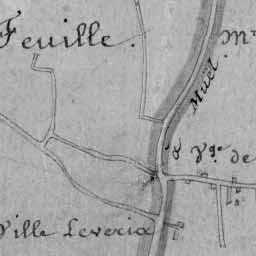 Feuille.
Mn
Muël.
Vge. de
Ville Leveria